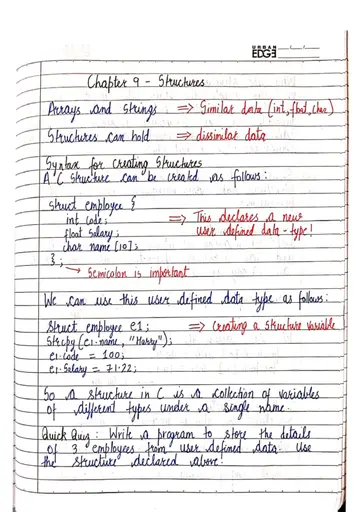 URBAN
EDGE
Chapter 9 - Structures
Arrays and Strings => Similar data (int, float, char)
Structures can hold => dissimilar data
Syntax for creating Structures
A C Structure can be created as follows:
struct employee {
int code; => This declares a new
float Salary; user defined data-type!
char name [10];
};
→ Semicolon is important
We can use this user defined data type as follows:
Struct employee e1; => Creating a Structure variable
Strcpy (e1.name, "Harry");
e1.code = 100;
e1.Salary = 71.22;
So a structure in C is a collection of variables
of different types under a single name.
Quick Quiz: Write a program to store the details
of 3 employees from user defined data. Use
the structure declared above.